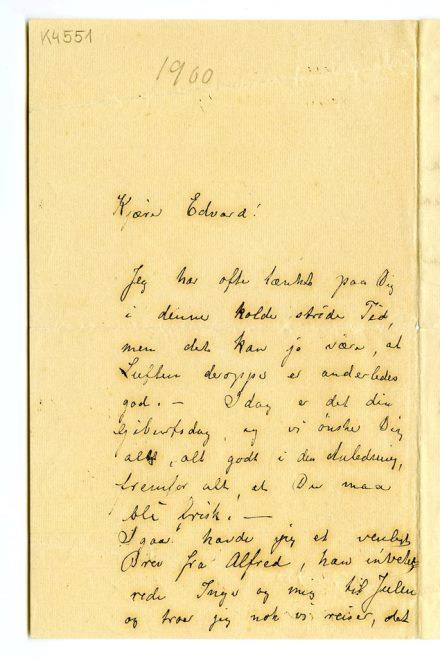 K4551
1900
Kjære Edvard!
Jeg har ofte tænkt paa Dig
i denne kolde strøde Tid,
men det kan jo være, at
Luften deroppe er anderledes
god. — Idag er det din
Geburtsdag, og vi ønske Dig
alt, alt godt i den Anledning,
fremfor alt, at Du maa
bli frisk. —
Igaar havde jeg et venligt
Brev fra Alfred, han inviterede
Inger og mig til Julen
og troer jeg nok vi reiser, det